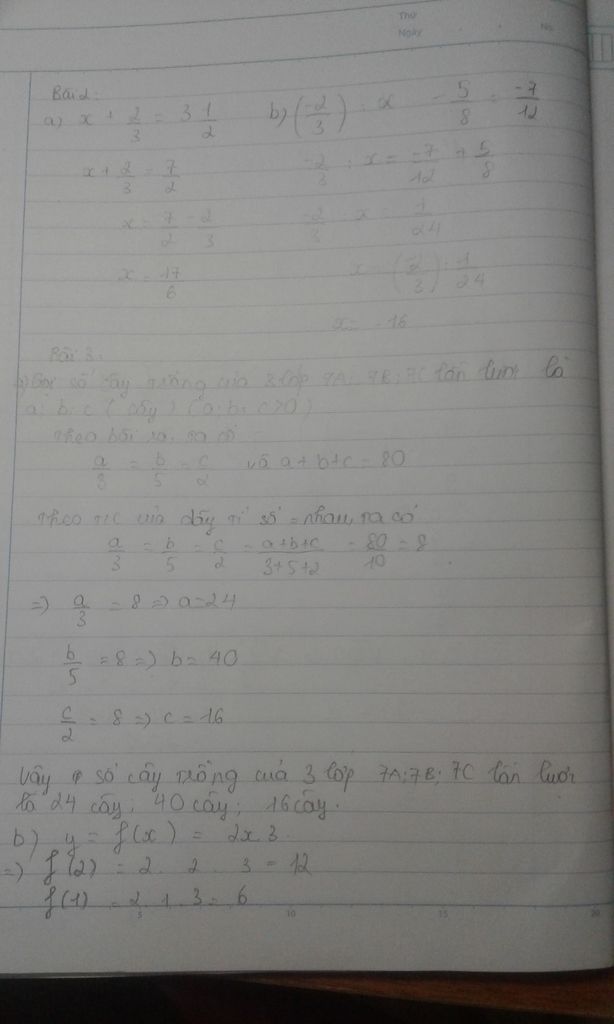 Thứ
Ngày No.
Bài 2:
a) x + 2/3 = 3 1/2 b) (-2/3) : x - 5/8 = -7/12
x + 2/3 = 7/2 -2/3 : x = -7/12 + 5/8
x = 7/2 - 2/3 -2/3 : x = 1/24
x = 17/6 x = (-2/3) : 1/24
x = -16
Bài 3:
Gọi số cây trồng của 3 lớp 7A; 7B; 7C lần lượt là
a; b; c (cây) (a; b; c >0)
Theo bài ra, ta có
a/3 = b/5 = c/2 và a + b + c = 80
Theo T/C của dãy tỉ số = nhau, ta có
a/3 = b/5 = c/2 = a+b+c/3+5+2 = 80/10 = 8
=> a/3 = 8 => a = 24
b/5 = 8 => b = 40
c/2 = 8 => c = 16
Vậy số cây trồng của 3 lớp 7A; 7B; 7C lần lượt
là 24 cây; 40 cây; 16 cây.
b) y = f(x) = 2x.3
=> f(2) = 2 . 2 . 3 = 12
f(1) = 2 . 1 . 3 = 6
5 10 15 20